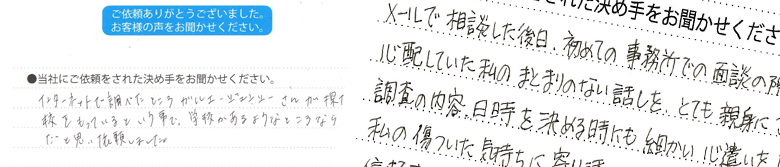 ご依頼ありがとうございました。
お客様の声をお聞かせください。
●当社にご依頼をされた決め手をお聞かせください。
インターネットで調べたところ ガルエージェンシーさんが探偵
校をもっているという事で、学校があるようなところなら
だと思い依頼しました。
された決め手をお聞かせくださ
メールで相談した後日、初めての事務所での面談の
心配していた私のまとまりのない話しを、とても親身に
調査の内容、日時を決める時にも細かい心遣いを
私の傷ついた気持ちに寄り